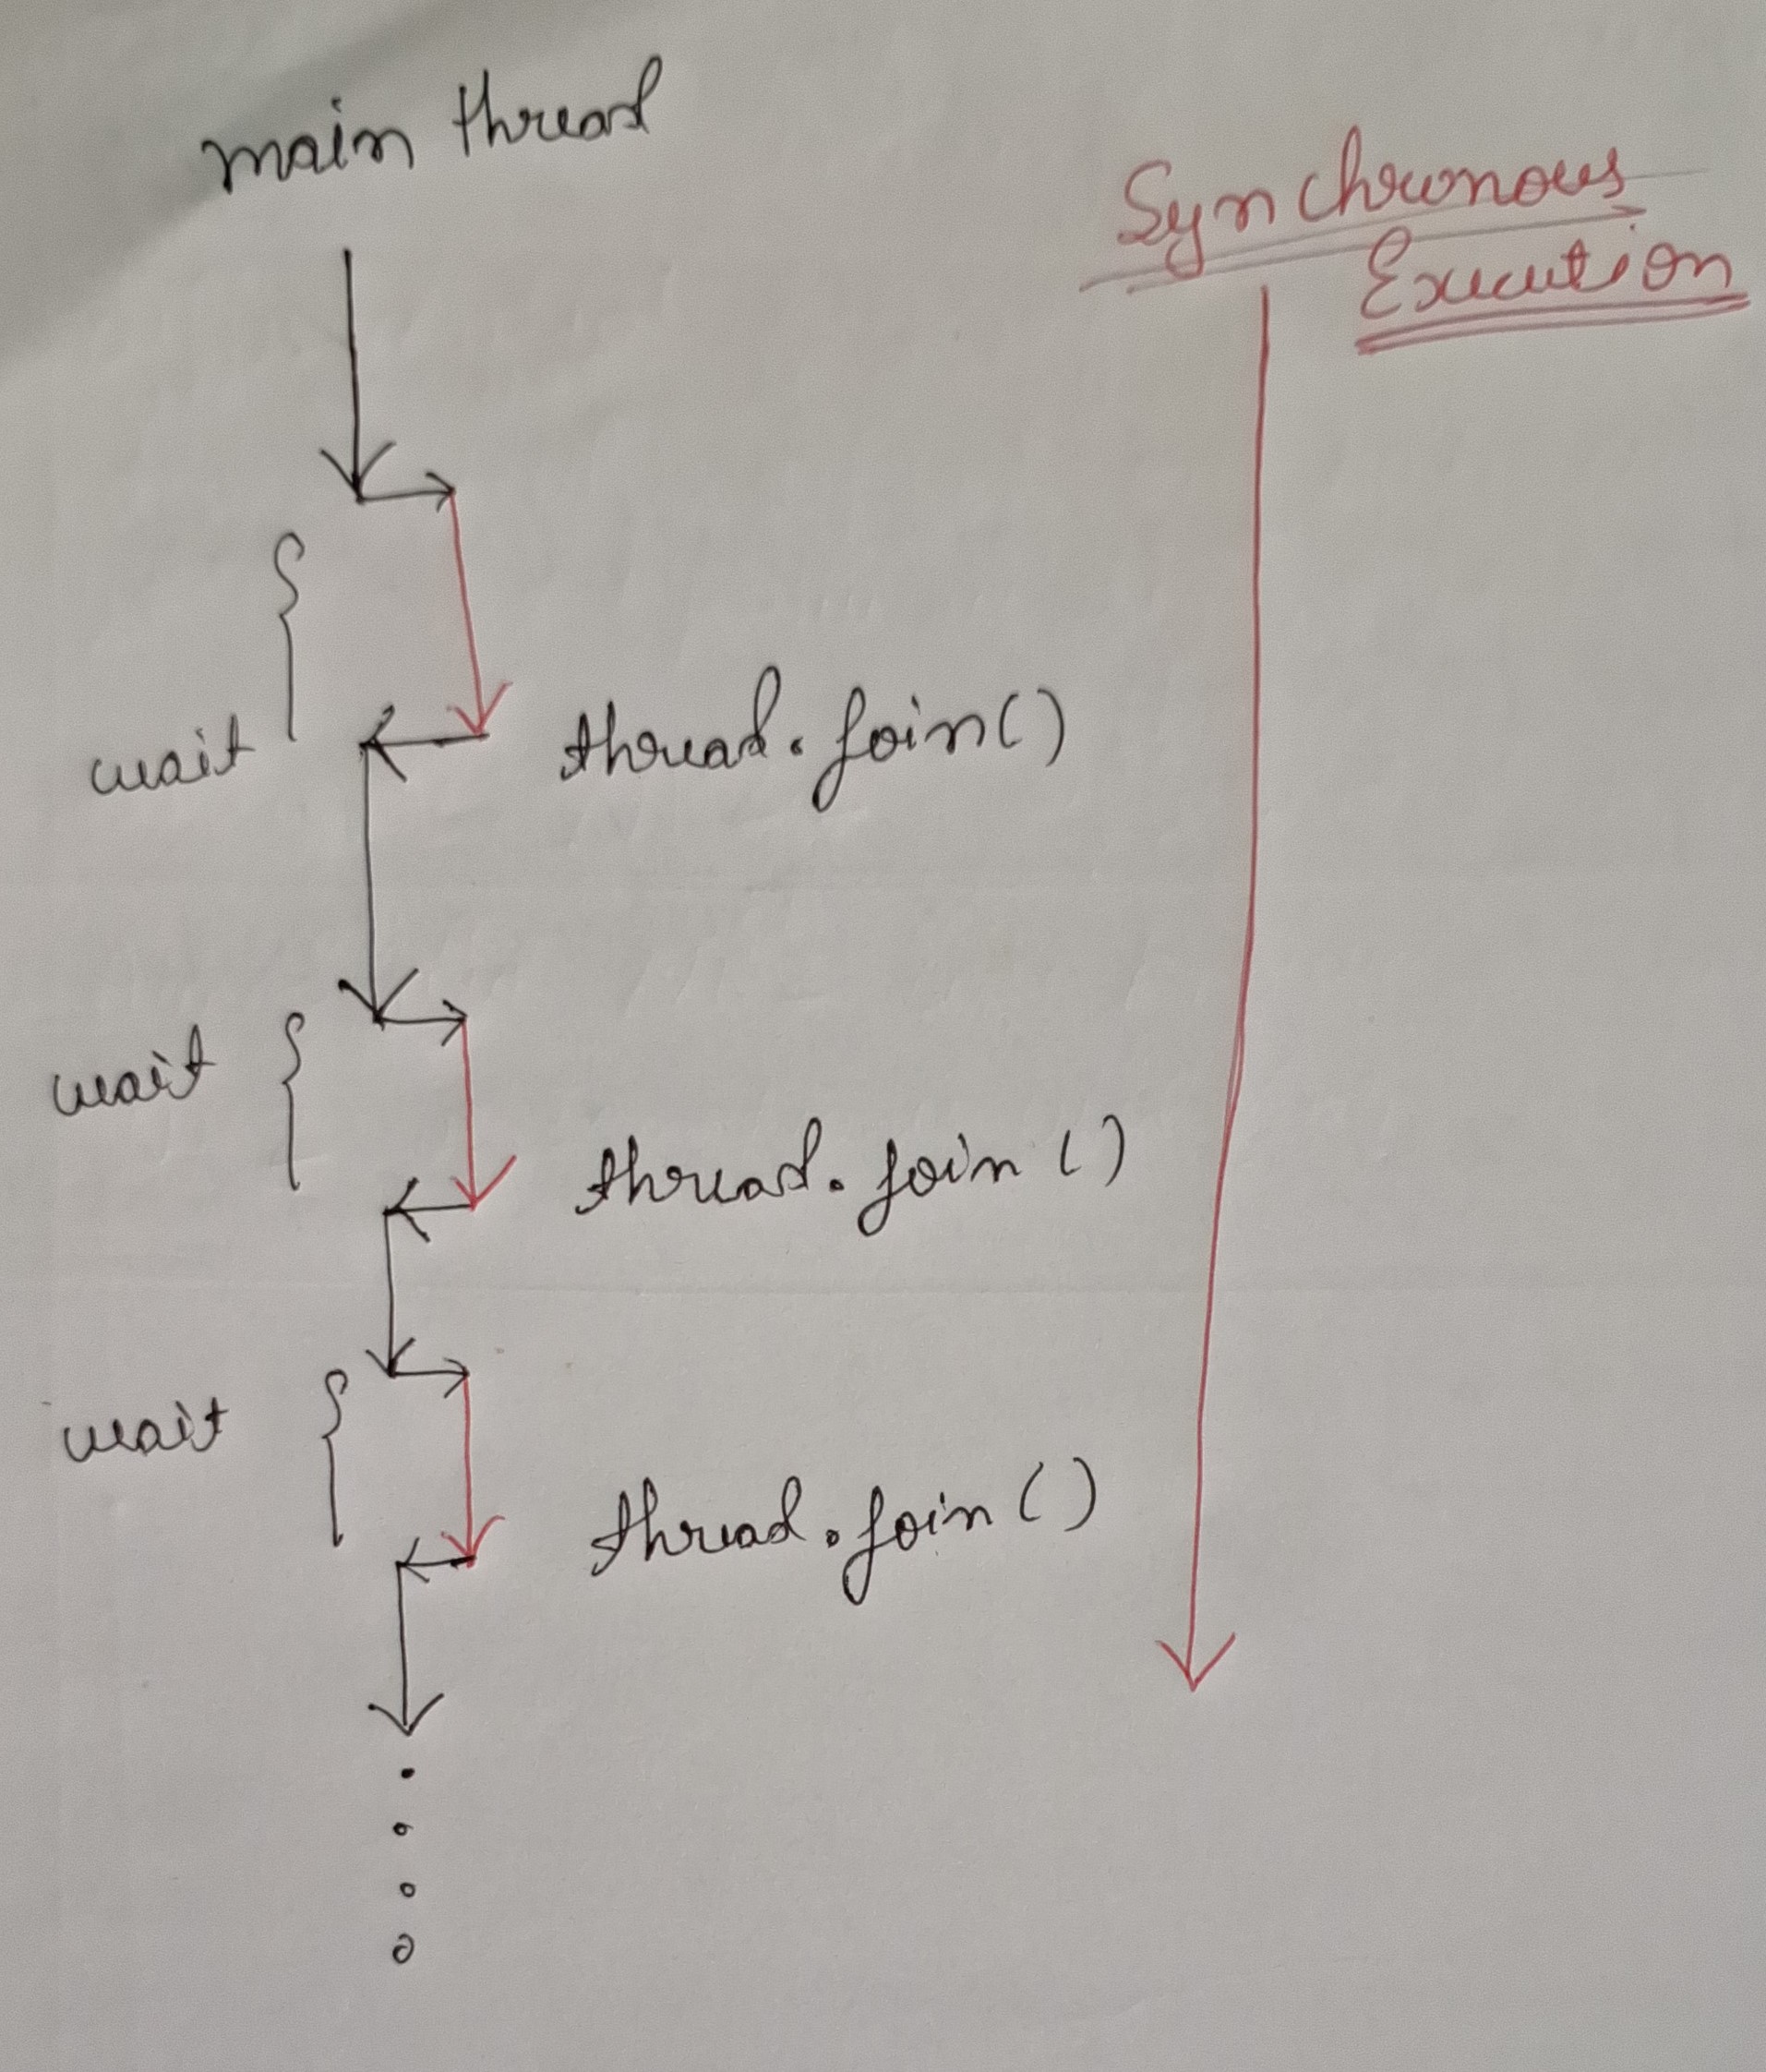 main thread
Synchronous
Execution
wait
thread.join()
wait
thread.join()
wait
thread.join()